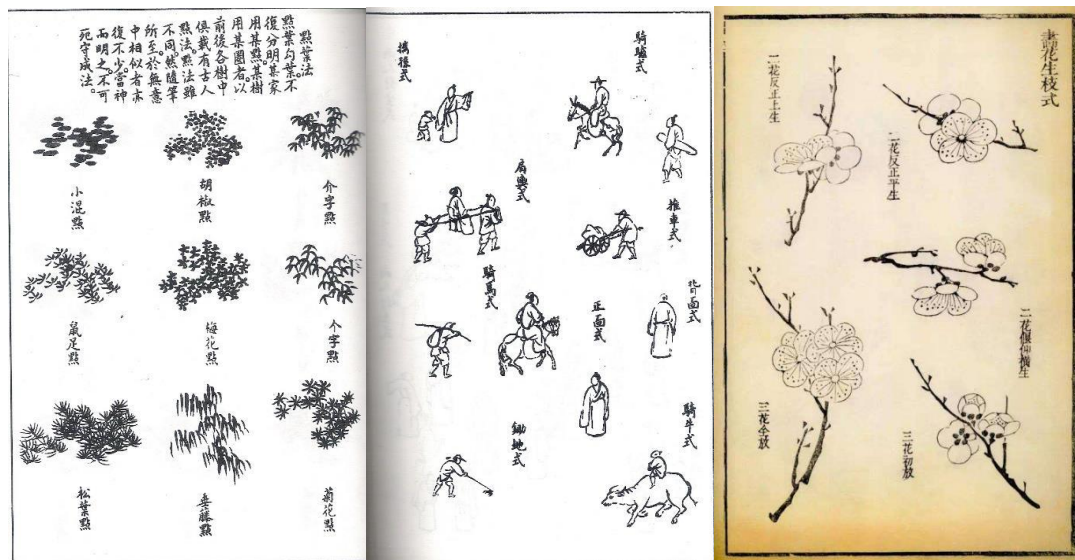 點葉法
點葉勾葉。不
復分明某家
用某點。某樹
用某圈者。以
前後各樹中
俱載有古人
點法。點法雖
不同。然隨筆
所至。於無意
中相似者亦
復不少。當神
而明之。不可
死守成法。
介字點
胡椒點
小混點
个字點
梅花點
鼠足點
菊花點
垂藤點
松葉點
騎驢式
肩輿式
推車式
背面式
正面式
騎馬式
騎牛式
鋤地式
畫花生枝式
二花反正平生
二花反正上生
二花偃仰橫生
三花初放
三花全放